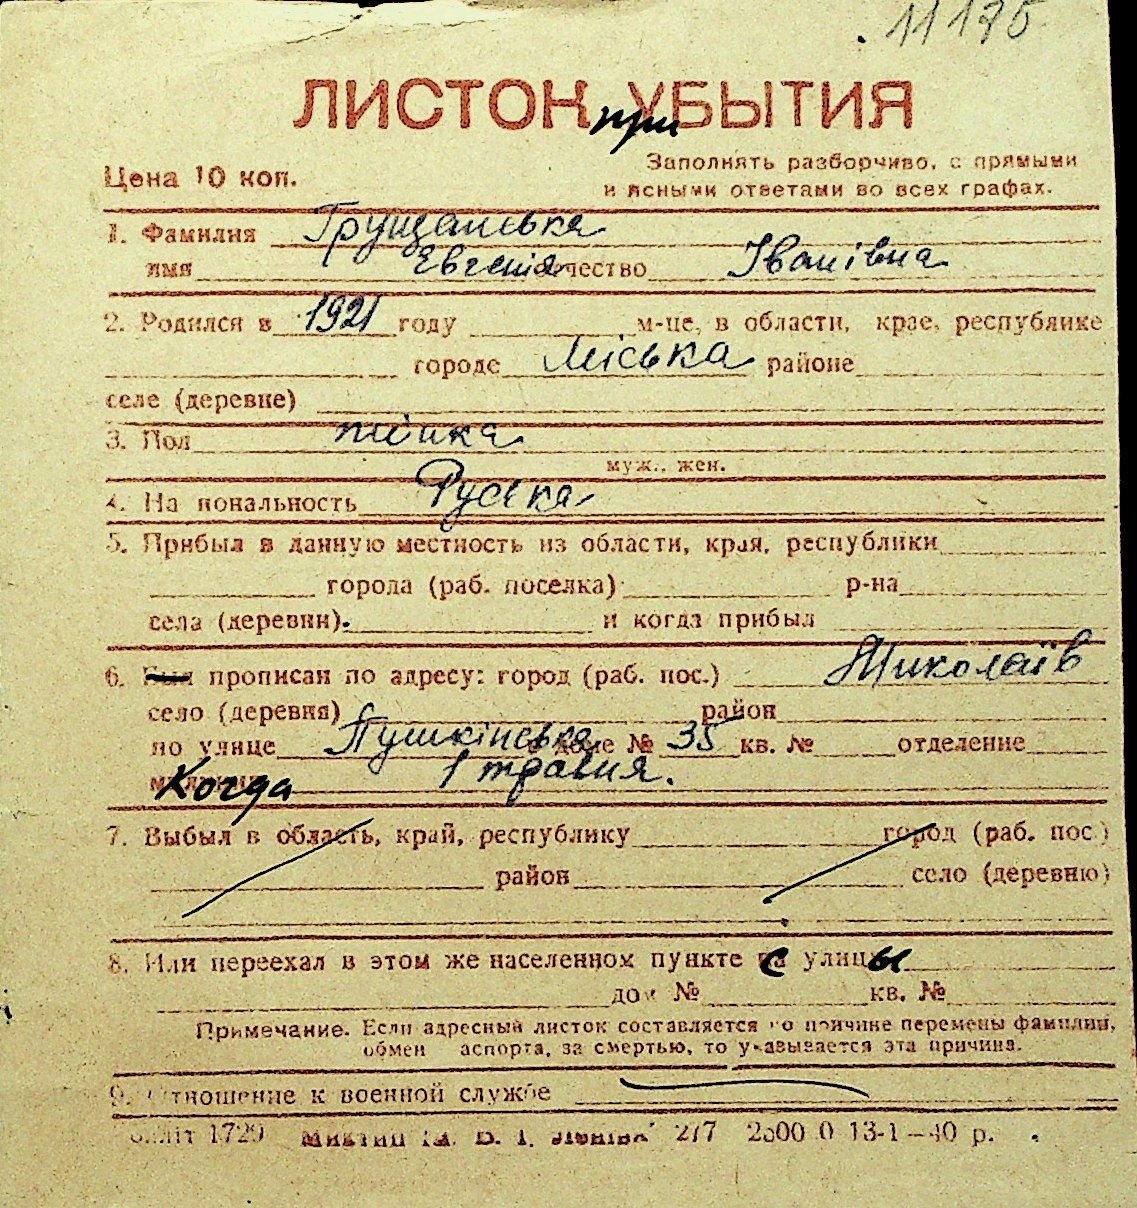 11175
ЛИСТОК при УБЫТИЯ
Цена 10 коп.
Заполнять разборчиво, с прямыми
и ясными ответами во всех графах.
1. Фамилия Грущанська
имя Евгенія отчество Іванівна
2. Родился в 1921 году м-це, в области, крае, республике
городе Міська районе
селе (деревне)
3. Пол жінка
муж., жен.
4. Национальность Руська
5. Прибыл в данную местность из области, края, республики
города (раб. поселка) р-на
села (деревни). и когда прибыл
6. Был прописан по адресу: город (раб. пос.) Миколаїв
село (деревня) район
по улице Пушкінська в доме № 35 кв. № отделение
Когда 1 травня.
7. Выбыл в область, край, республику город (раб. пос.)
район село (деревню)
8. Или переехал в этом же населенном пункте с улицы
дом № кв. №
Примечание. Если адресный листок составляется по причине перемены фамилии,
обмен паспорта, за смертью, то указывается эта причина.
9. Отношение к военной службе
1729 2/7 13-1-40 р.